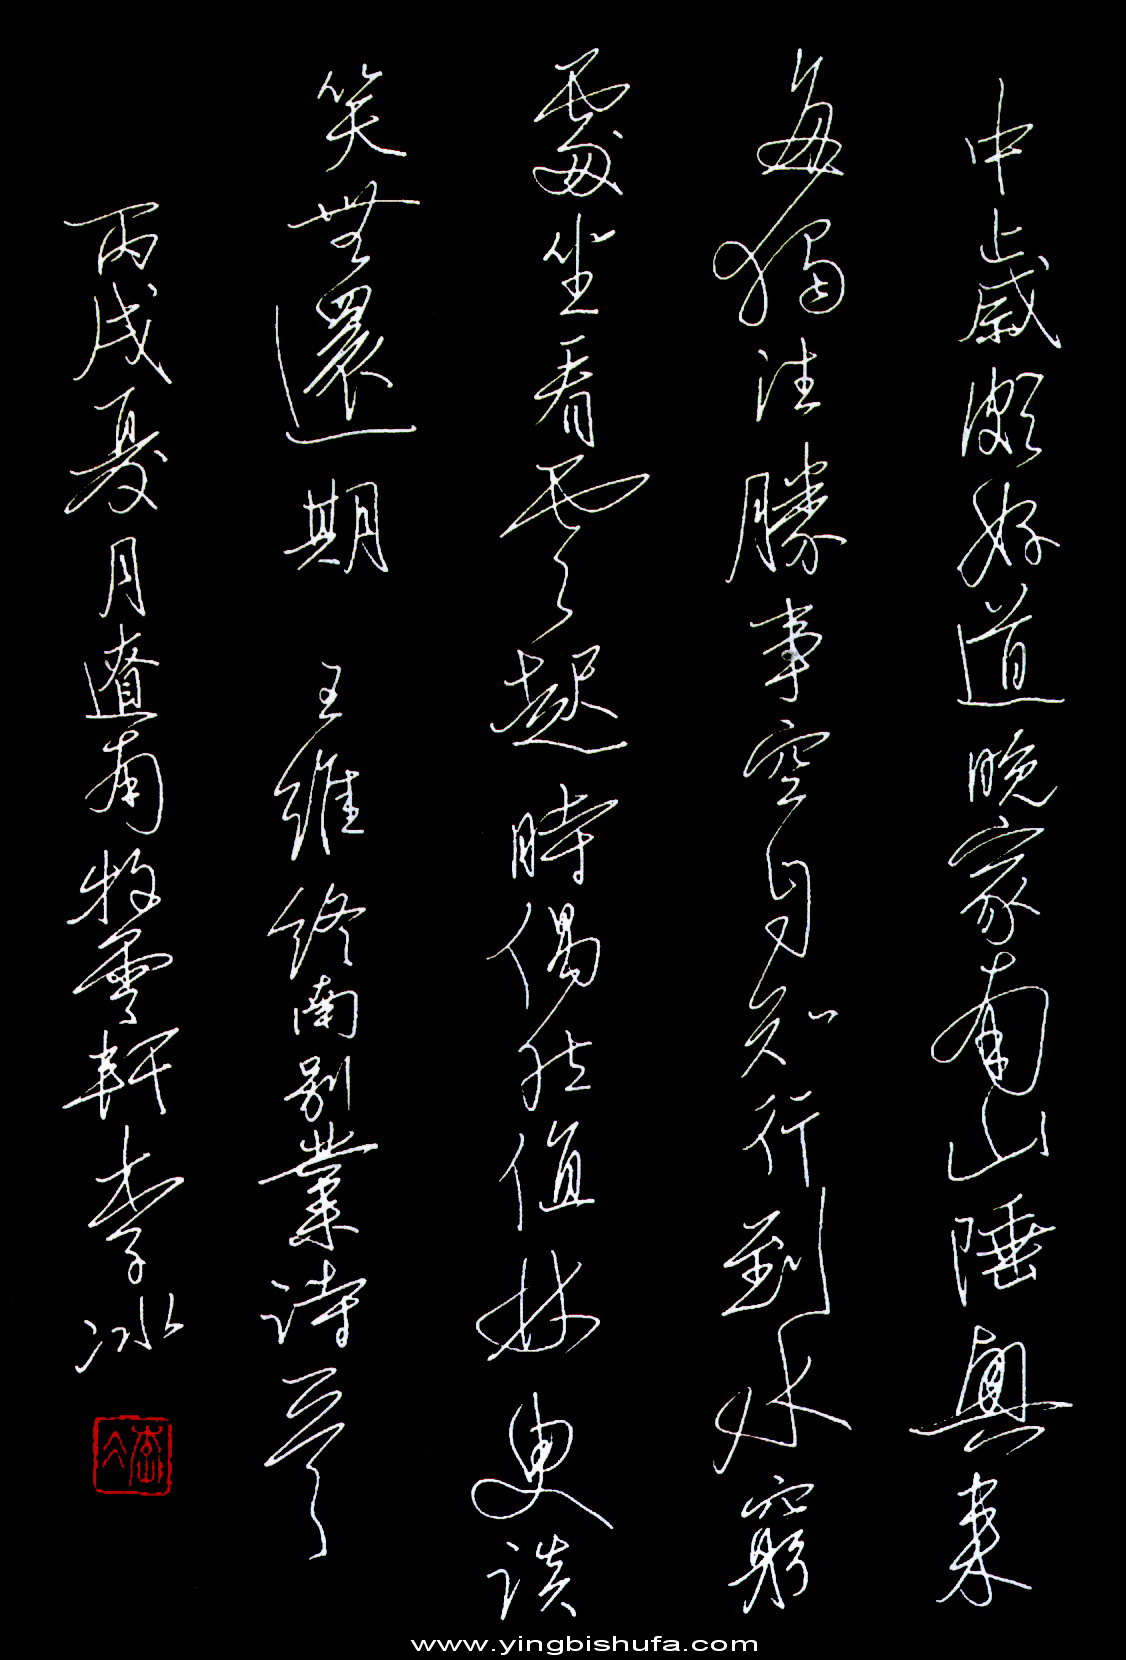 中歲頗好道晚家南山陲興來
每獨往勝事空自知行到水窮
處坐看雲起時偶然值林叟談
笑無還期 王維終南別業詩
丙戌夏月遼南牧雲軒李冰
www.yingbishufa.com